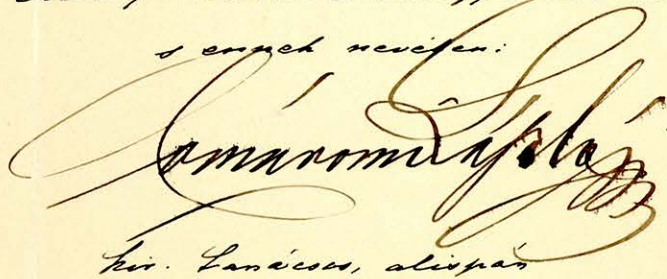 s ennek nevében:
Komáromi László
kir. tanácsos, alispán